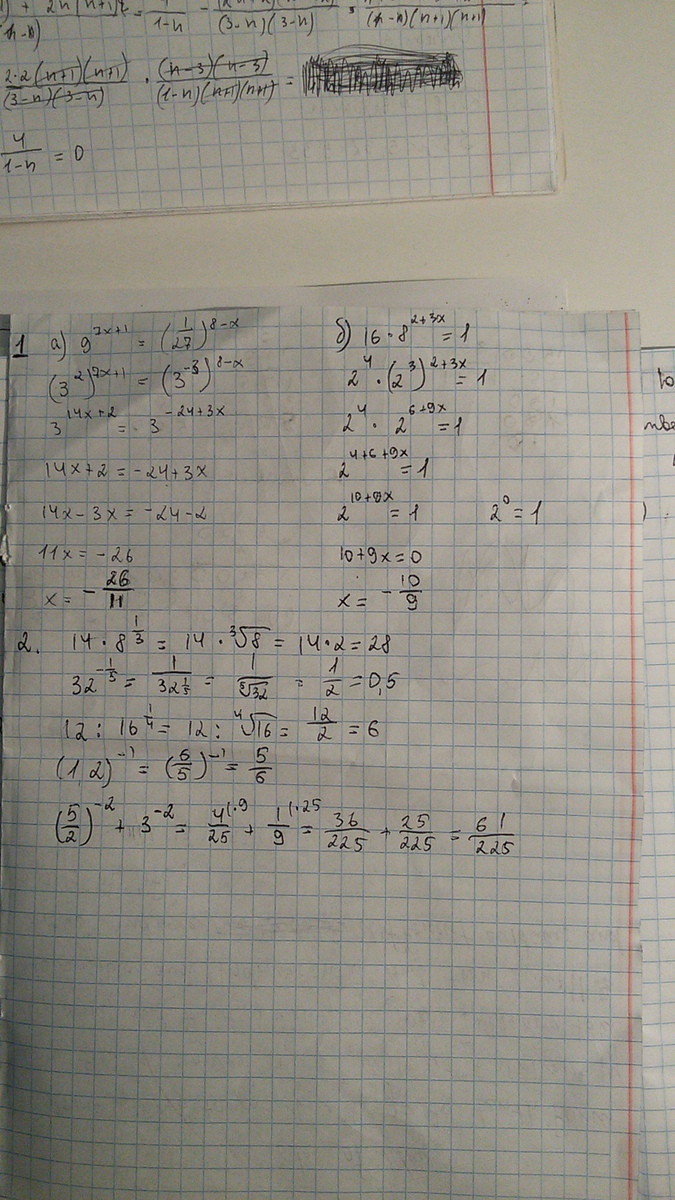 2·2(n+1)(n+1)/(3-n)(3-n) · (n-3)(n-3)/(1-n)(n+1)(n+1) =
4/(1-n) = 0
1 а) 9^(7x+1) = (1/27)^(8-x)
(3^2)^(7x+1) = (3^(-3))^(8-x)
3^(14x+2) = 3^(-24+3x)
14x+2 = -24+3x
14x-3x = -24-2
11x = -26
x = -26/11
б) 16·8^(2+3x) = 1
2^4·(2^3)^(2+3x) = 1
2^4·2^(6+9x) = 1
2^(4+6+9x) = 1
2^(10+9x) = 1 2^0 = 1
10+9x = 0
x = -10/9
2. 14·8^(1/3) = 14·∛8 = 14·2 = 28
32^(-1/5) = 1/32^(1/5) = 1/⁵√32 = 1/2 = 0,5
12 : 16^(1/4) = 12 : ⁴√16 = 12/2 = 6
(1,2)^(-1) = (6/5)^(-1) = 5/6
(5/2)^(-2) + 3^(-2) = 4/25 (·9 + 1/9 (·25 = 36/225 + 25/225 = 61/225